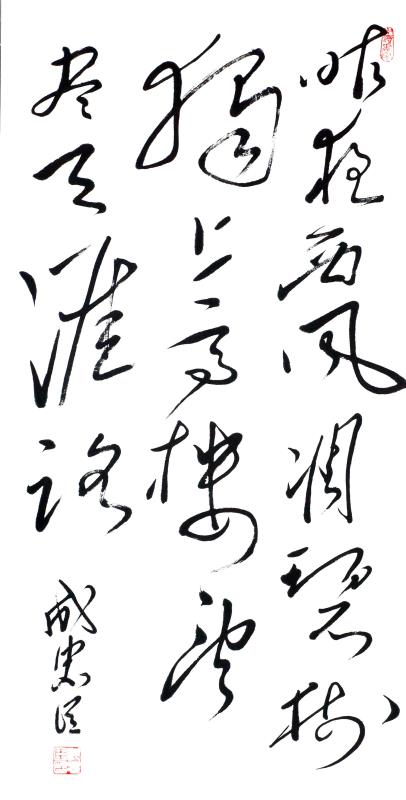 昨夜西风凋碧树
獨上高樓望
尽天涯路
成忠